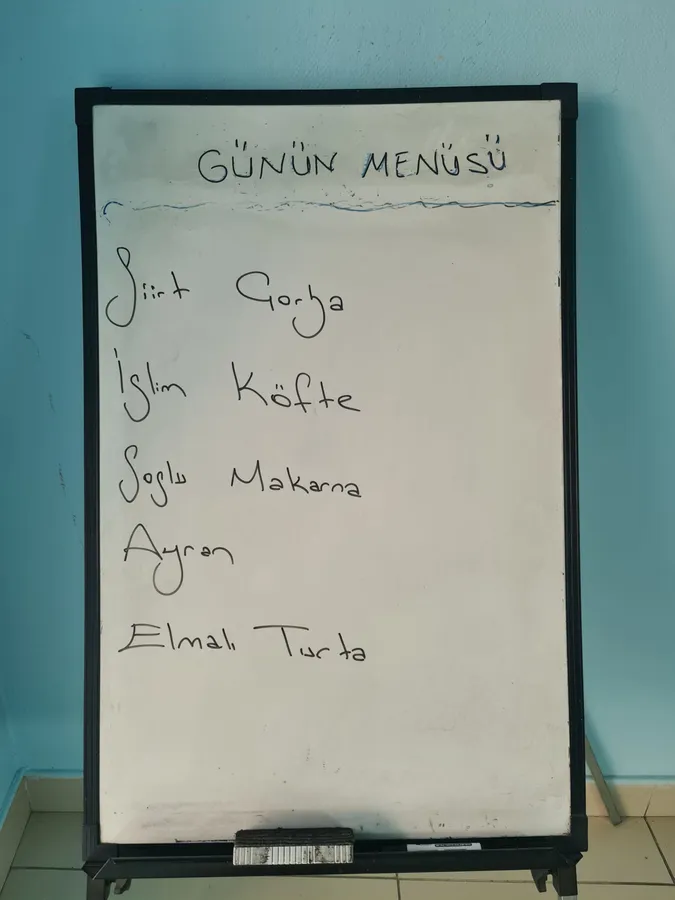 GÜNÜN MENÜSÜ
Siirt Çorba
İslim Köfte
Soslu Makarna
Ayran
Elmalı Turta